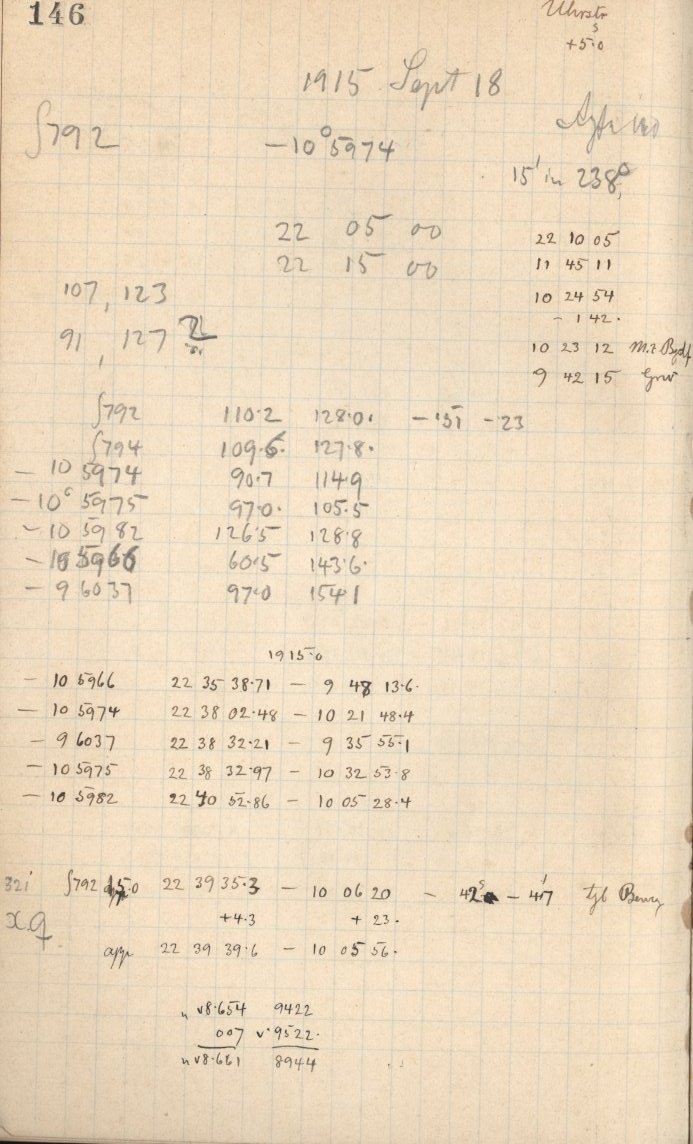 146
Uhrstr
s
+5.0
1915 Sept 18
∫792 -10° 5974
15' in 238°
22 05 00
22 15 00
22 10 05
11 45 11
10 24 54
- 1 42.
10 23 12 M.Z. Bgdf
9 42 15 Grw
107, 123
91, 127
∫792 110.2 128.0. - 51 - 23
∫794 109.6. 127.8.
- 10 5974 90.7 114.9
- 10° 5975 97.0. 105.5
- 10 5982 126.5 128.8
- 10 5966 60.5 143.6.
- 9 6037 97.0 154.1
1915.0
- 10 5966 22 35 38.71 - 9 48 13.6.
- 10 5974 22 38 02.48 - 10 21 48.4
- 9 6037 22 38 32.21 - 9 35 55.1
- 10 5975 22 38 32.97 - 10 32 53.8
- 10 5982 22 40 52.86 - 10 05 28.4
321 ∫792 15.0 22 39 35.3 - 10 06 20 - 42s - 4'7 tgl Bewg
+4.3 + 23.
app 22 39 39.6 - 10 05 56.
n v8.654 9422
007 v.9522.
n v8.661 8944